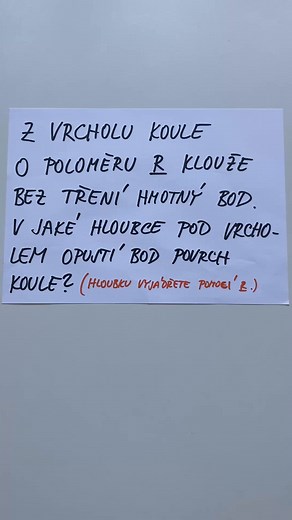 Z VRCHOLU KOULE
O POLOMĚRU R KLOUŽE
BEZ TŘENÍ HMOTNÝ BOD.
V JAKÉ HLOUBCE POD VRCHO-
LEM OPUSTÍ BOD POVRCH
KOULE? (HLOUBKU VYJÁDŘETE POMOCÍ R.)